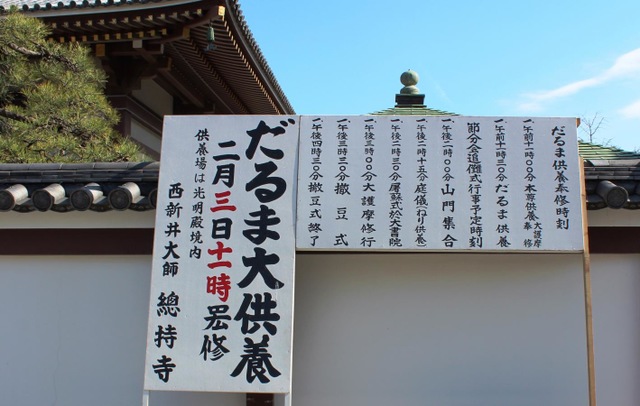 だるま供養奉修時刻
一、午前十一時〇〇分 本尊供養 大護摩奉修
一、午前十一時三〇分 だるま供養
節分会追儺式行事予定時刻
一、午後二時〇〇分 山門集合
一、午後二時十五分 庭儀(わり供養)
一、午後二時三〇分 屠蘇式於大書院
一、午後三時〇〇分 大護摩修行
一、午後三時三〇分 撒豆式
一、午後四時三〇分 撒豆式終了
だるま大供養
二月三日十一時 奉修
供養場は光明殿境内
西新井大師 總持寺